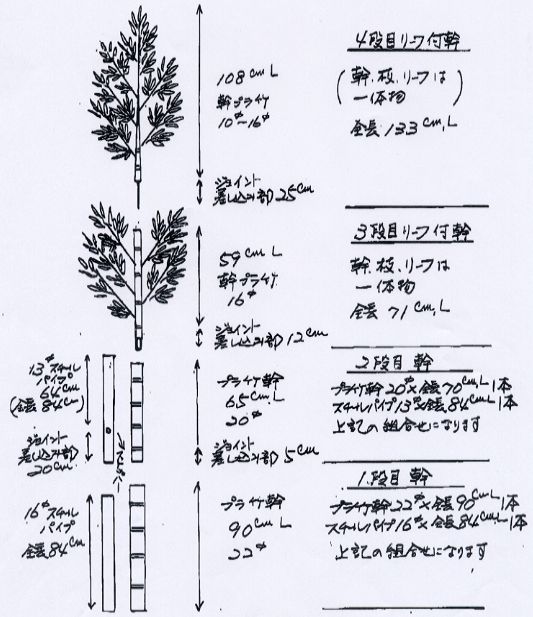 108cm L
幹プラチク
10φ~16φ
ジョイント
差し込み部 25cm
4段目リーフ付幹
(幹、枝、リーフは
一体物)
全長 133cm,L
59cm L
幹プラチク
16φ
ジョイント
差し込み部 12cm
3段目リーフ付幹
幹、枝、リーフは
一体物
全長 71cm,L
13φスチール
パイプ
64cm
(全長 84cm)
ジョイント
差し込み部
20cm
プラチク幹
65cm L
20φ
ジョイント
差し込み部 5cm
2段目 幹
プラチク幹 20φ×全長70cm,L 1本
スチールパイプ13φ×全長84cm,L 1本
上記の組合せになります
16φスチール
パイプ
全長84cm
プラチク幹
90cm L
22φ
1段目 幹
プラチク幹 22φ×全長90cm,L 1本
スチールパイプ16φ×全長84cm,L 1本
上記の組合せになります